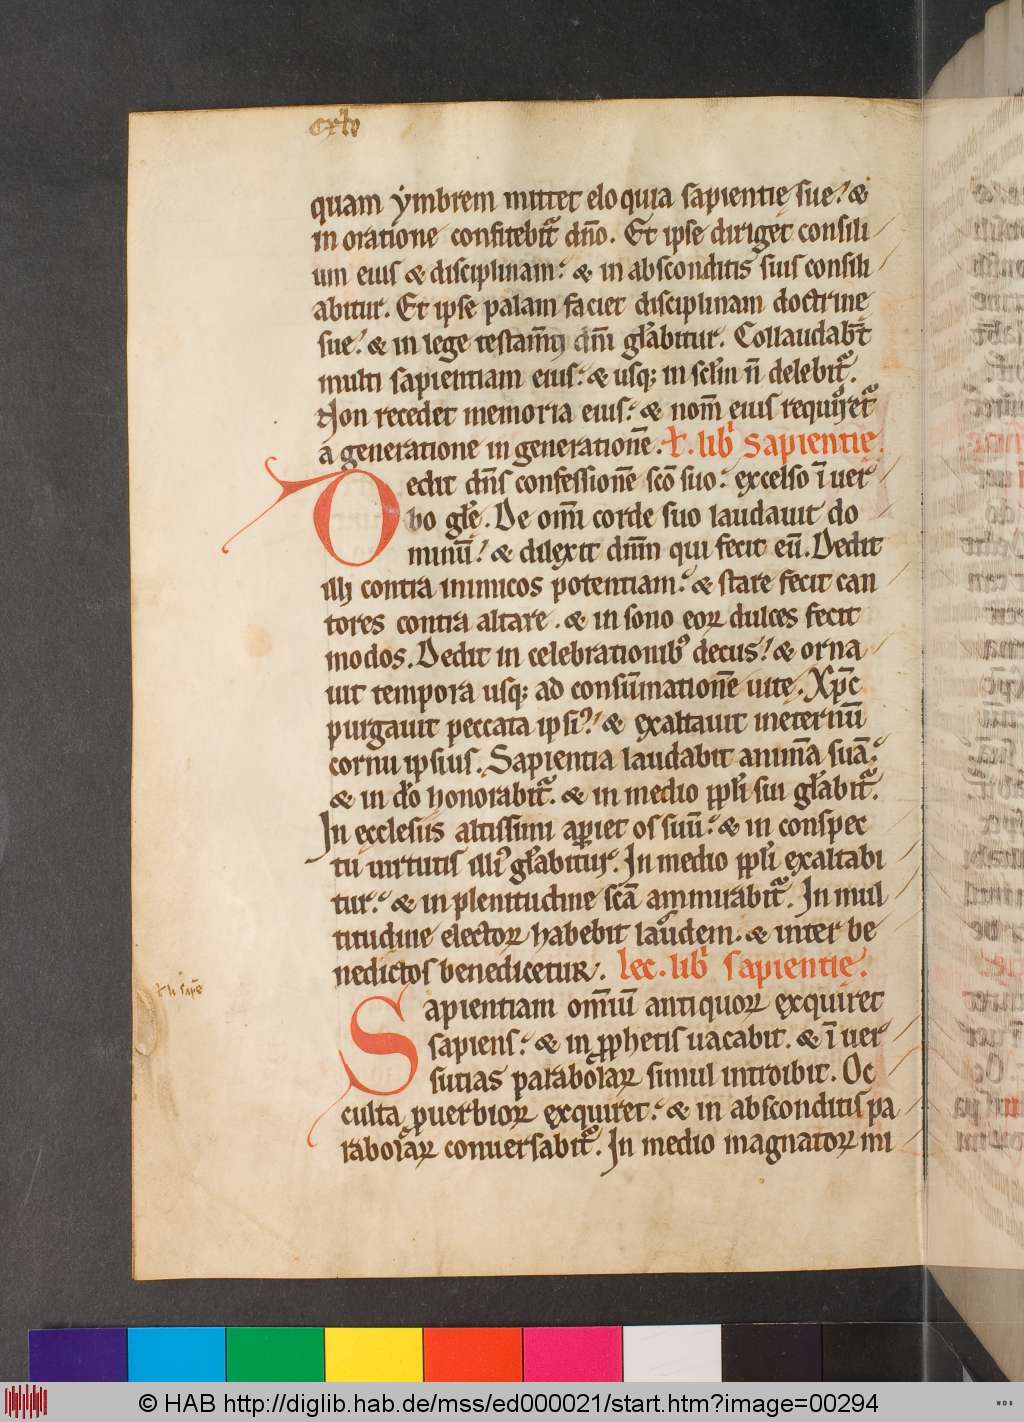 quam ẏmbrem mittet eloquia sapientie sue. &
in oratione confitebit᷑ dño. Et ipse diriget consili
um eius & disciplinam. & in absconditis suis consili
abitur. Et ipse palam faciet disciplinam doctrine
sue. & in lege testam̄ti dñi gl̄abitur. Collaudab̄t
multi sapientiam eius. & usq; in sc̄lm ñ delebit᷑.
Non recedet memoria eius. & nom̄ eius requiret᷑
a generatione in generationē. lib̄ sapientie.
Dedit dñs confessionē sc̄o suo. excelso ī uer
bo gl̄e. De om̄i corde suo laudauit do
minū. & dilexit dm̄ qui fecit eū. Dedit
illi contra inimicos potentiam. & stare fecit can
tores contra altare. & in sono eoꝝ dulces fecit
modos. Dedit in celebrationibꝰ decus. & orna
uit tempora usq; ad consūmationē uite. Xp̄c
purgauit peccata ipsiꝰ. & exaltauit ineternū
cornu ipsius. Sapientia laudabit animā suā.
& in dō honorabit᷑. & in medio ppl̄i sui gl̄abit᷑.
In ecclesiis altissimi aꝑiet os suū. & in conspec
tu uirtutis illiꝰ gl̄abitur. In medio ppl̄i exaltabi
tur. & in plenitudine sc̄a ammirabit᷑. In mul
titudine electoꝝ habebit laudem. & inter be
nedictos benedicetur. lec. lib̄ sapientie.
Sapientiam om̄iū antiquoꝝ exquiret
sapiens. & in ꝓphetis uacabit. & ī uer
sutias parabolaꝝ simul introibit. Oc
culta ꝓuerbioꝝ exquiret. & in absconditis pa
rabolaꝝ conuersabit᷑. In medio magnatoꝝ mi
© HAB http://diglib.hab.de/mss/ed000021/start.htm?image=00294